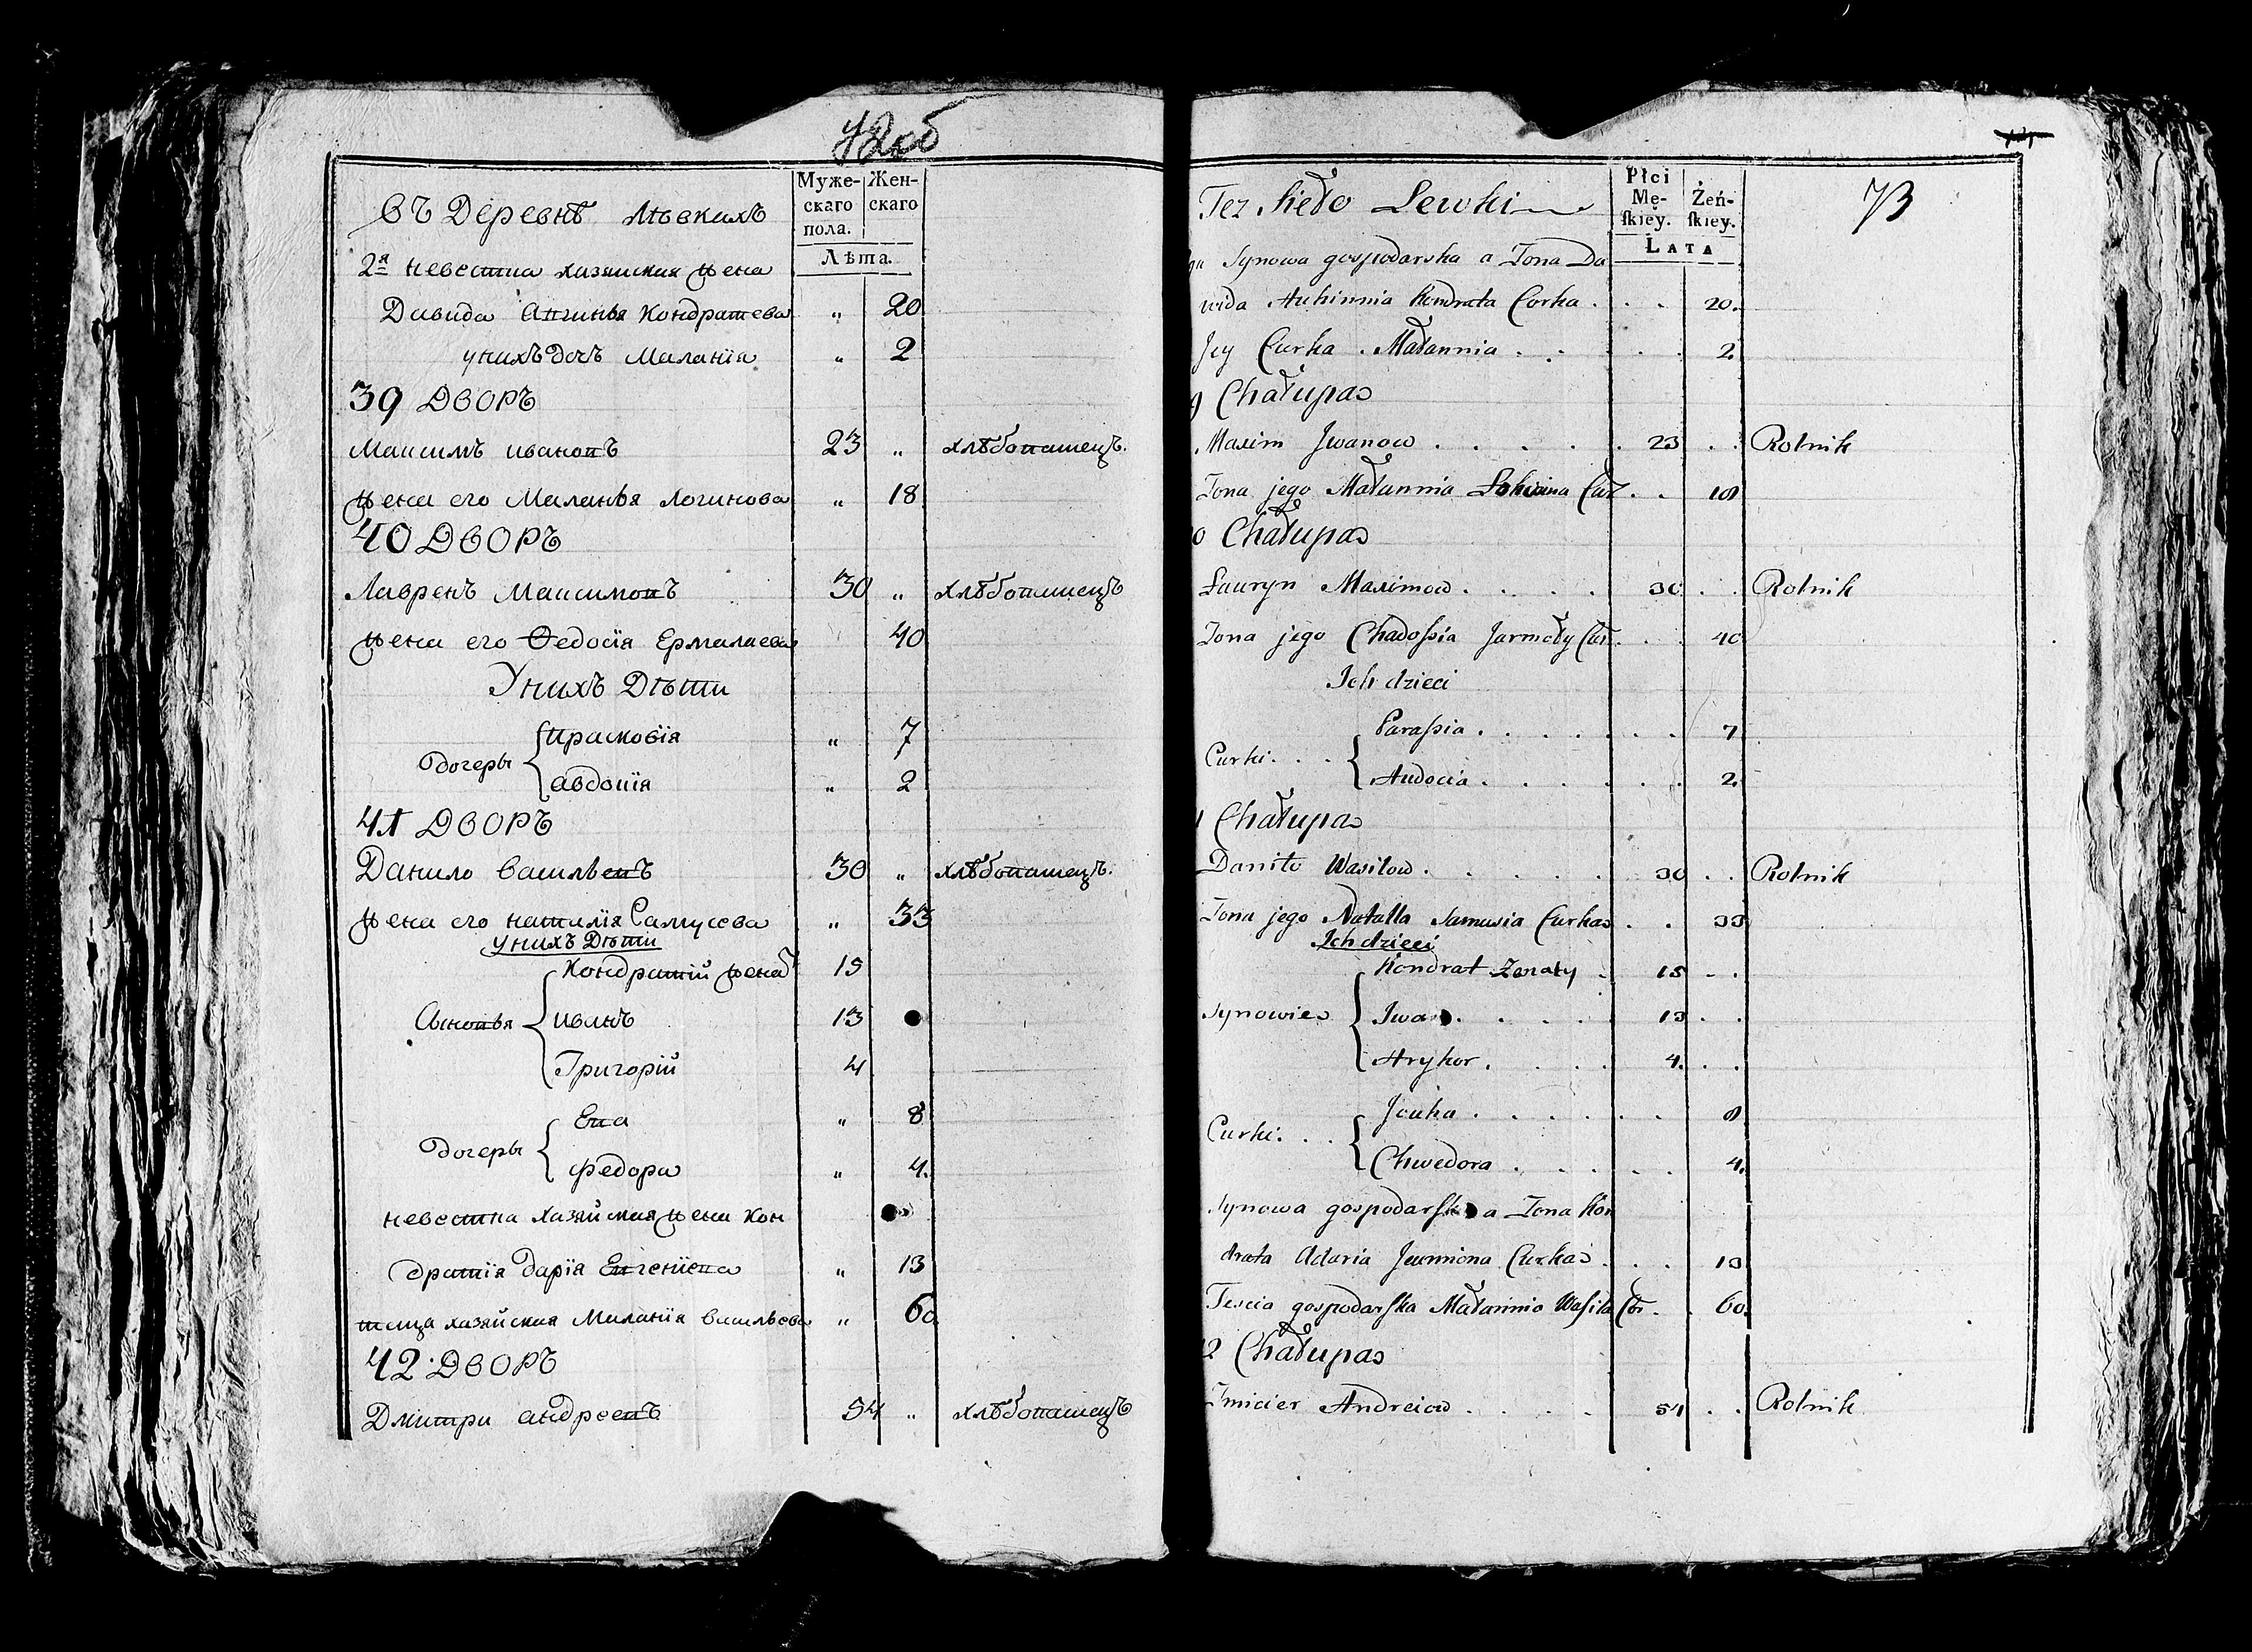 72об
Муже- Жен-
скаго скаго
пола.
Лѣта.
въ Деревнѣ Лѣвкахъ
2я невестка хазяиская жена
Давида Апгинья Кондратева " 20
унихъ дочь Миланія " 2
39 ДВОРЪ
Максимъ ивановъ 23 " хлѣбопашецъ.
жена его Миланья Логинова " 18
40 ДВОРЪ
Лавренъ Максимовъ 30 " хлѣбопашецъ
жена его Ѳедосія Ермалаева 40
Унихъ Дѣти
дочеры
Прасковія " 7
авдокія " 2
41 ДВОРЪ
Данило Васильевъ 30 " хлѣбопашецъ.
жена его наталія Самусева " 33
унихъ Дѣти
Сыновья
Кондратій женатъ 15
иванъ 13
Григорій 4
дочеры
Ева " 8
Федора " 4.
невестка хазяйская жена Кон
дратія дарія Евгеніева " 13
теща хазяйская Миланія васильева " 60
42 ДВОРЪ
Дмитри андреевъ 54 " хлѣбопашецъ
73
Płci
Mę- Żeń-
skiey. skiey.
LATA
Tez Sieło Lewki
Synowa gospodarska a Zona Da
wida Auhinnia Kondrata Corka . . . 20.
Jey Curka . Małannia . . . . . 2.
9 Chałupa
Maxim Jwanow . . . . . 23 . . Rolnik
Zona jego Małannia Lohwina Cur . . 18
0 Chałupa
Lauryn Maximow . . . . 30 . . Rolnik
Zona jego Chadossia Jarmoły Cur . . . 40
Jch dzieci
Curki . . .
Parassia . . . . . . . 7
Audocia . . . . . . . 2.
1 Chałupa
Daniło Wasilow . . . . . 30 . . Rolnik
Zona jego Natalla Samusia Curka . . 33
Jch dzieci
Synowie
Kondrat Zonaty . 15 . .
Jwan . . . . . 13 . .
Hryhor . . . . 4 . . .
Curki . . .
Jeuka . . . . . . 8
Chwedora . . . . . 4.
Synowa gospodarska a Zona Kon
drata Adaria Jeumiona Curka . . . 13
Tescia gospodarska Małannia Wasila Cur . . 60.
2 Chałupa
Zmicier Andreiow . . . . 54 . . Rolnik